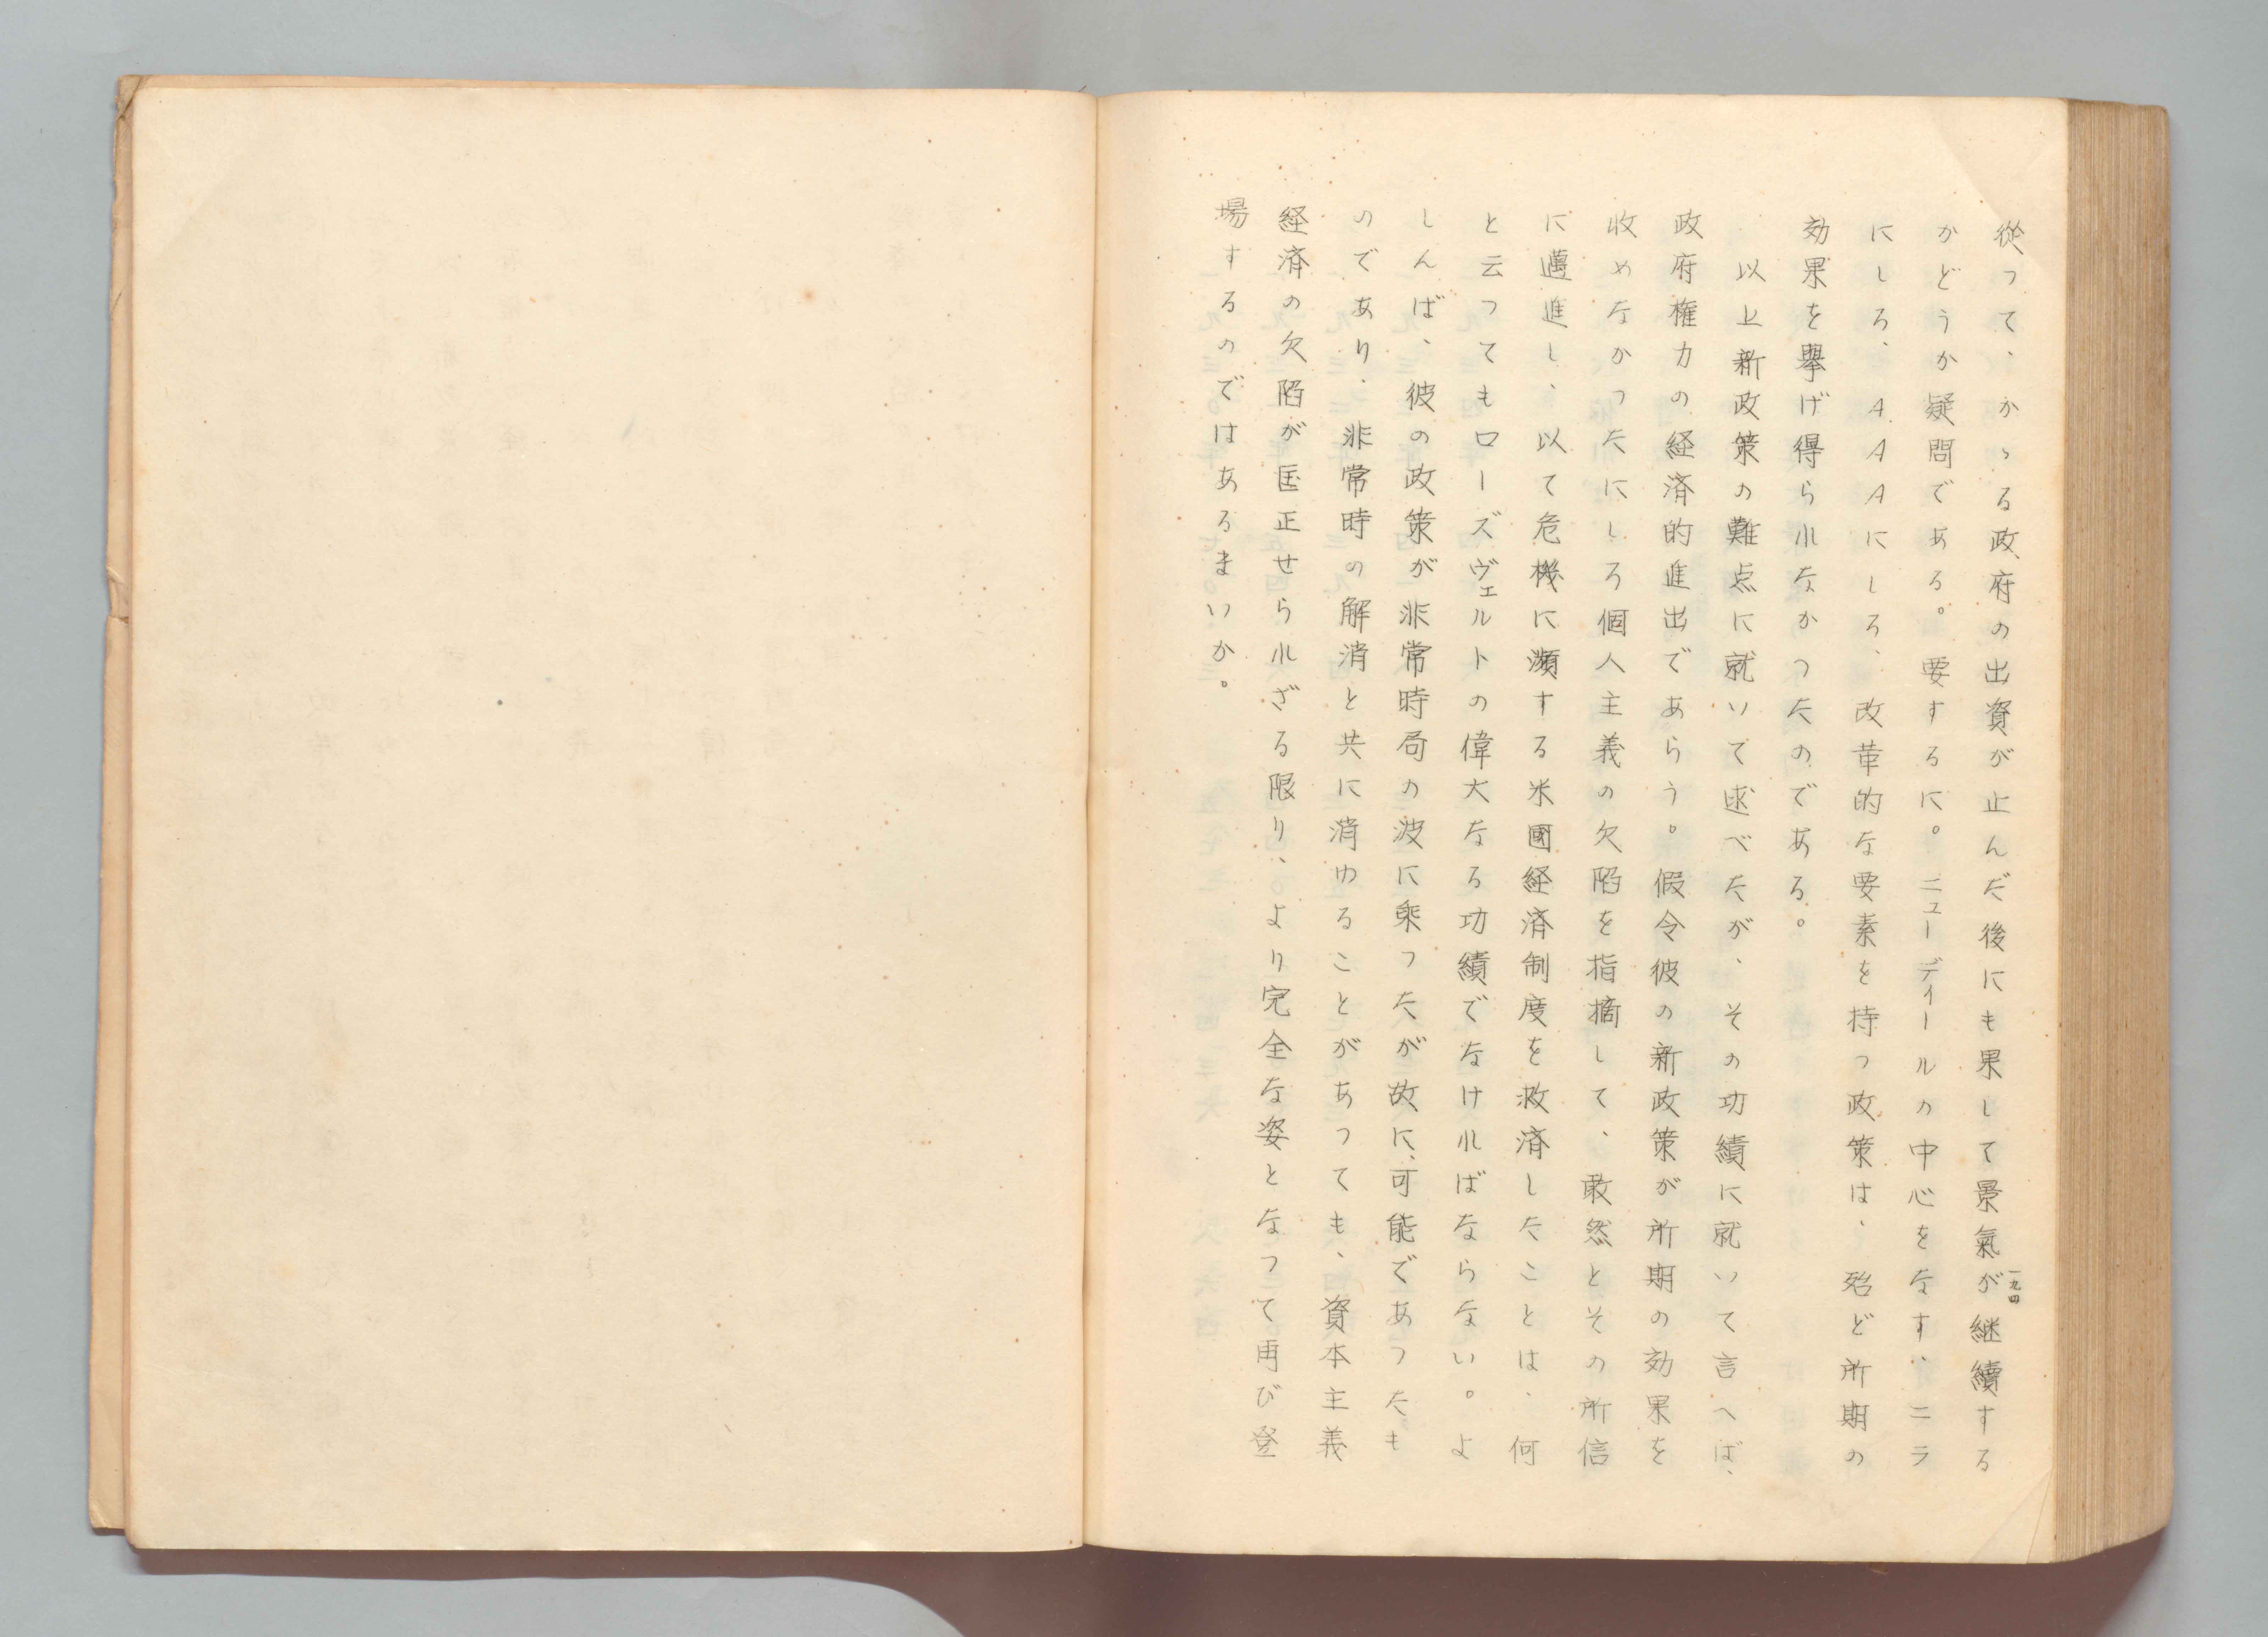 従って、かゝる政府の出資が止んだ後にも果して景氣が継續する
かどうか疑問である。要するに。ニューディールの中心をなす、ニラ
にしろ、AAAにしろ、改革的な要素を持つ政策は、殆ど所期の
効果を擧げ得られなかつたのである。
以上新政策の難点に就いて述べたが、その功績に就いて言へば、
政府権力の経済的進出であらう。假令彼の新政策が所期の効果を
收めなかつたにしろ個人主義の欠陥を指摘して、敢然とその所信
に邁進し、以て危機に瀕する米國経済制度を救済したことは、何
と云つてもローズヴェルトの偉大なる功績でなければならない。よ
しんば、彼の政策が非常時局の波に乗つたが故に、可能であつたも
のであり、非常時の解消と共に消ゆることがあつても、資本主義
経済の欠陥が匡正せられざる限り、より完全な姿となつて再び登
場するのではあるまいか。
一九四